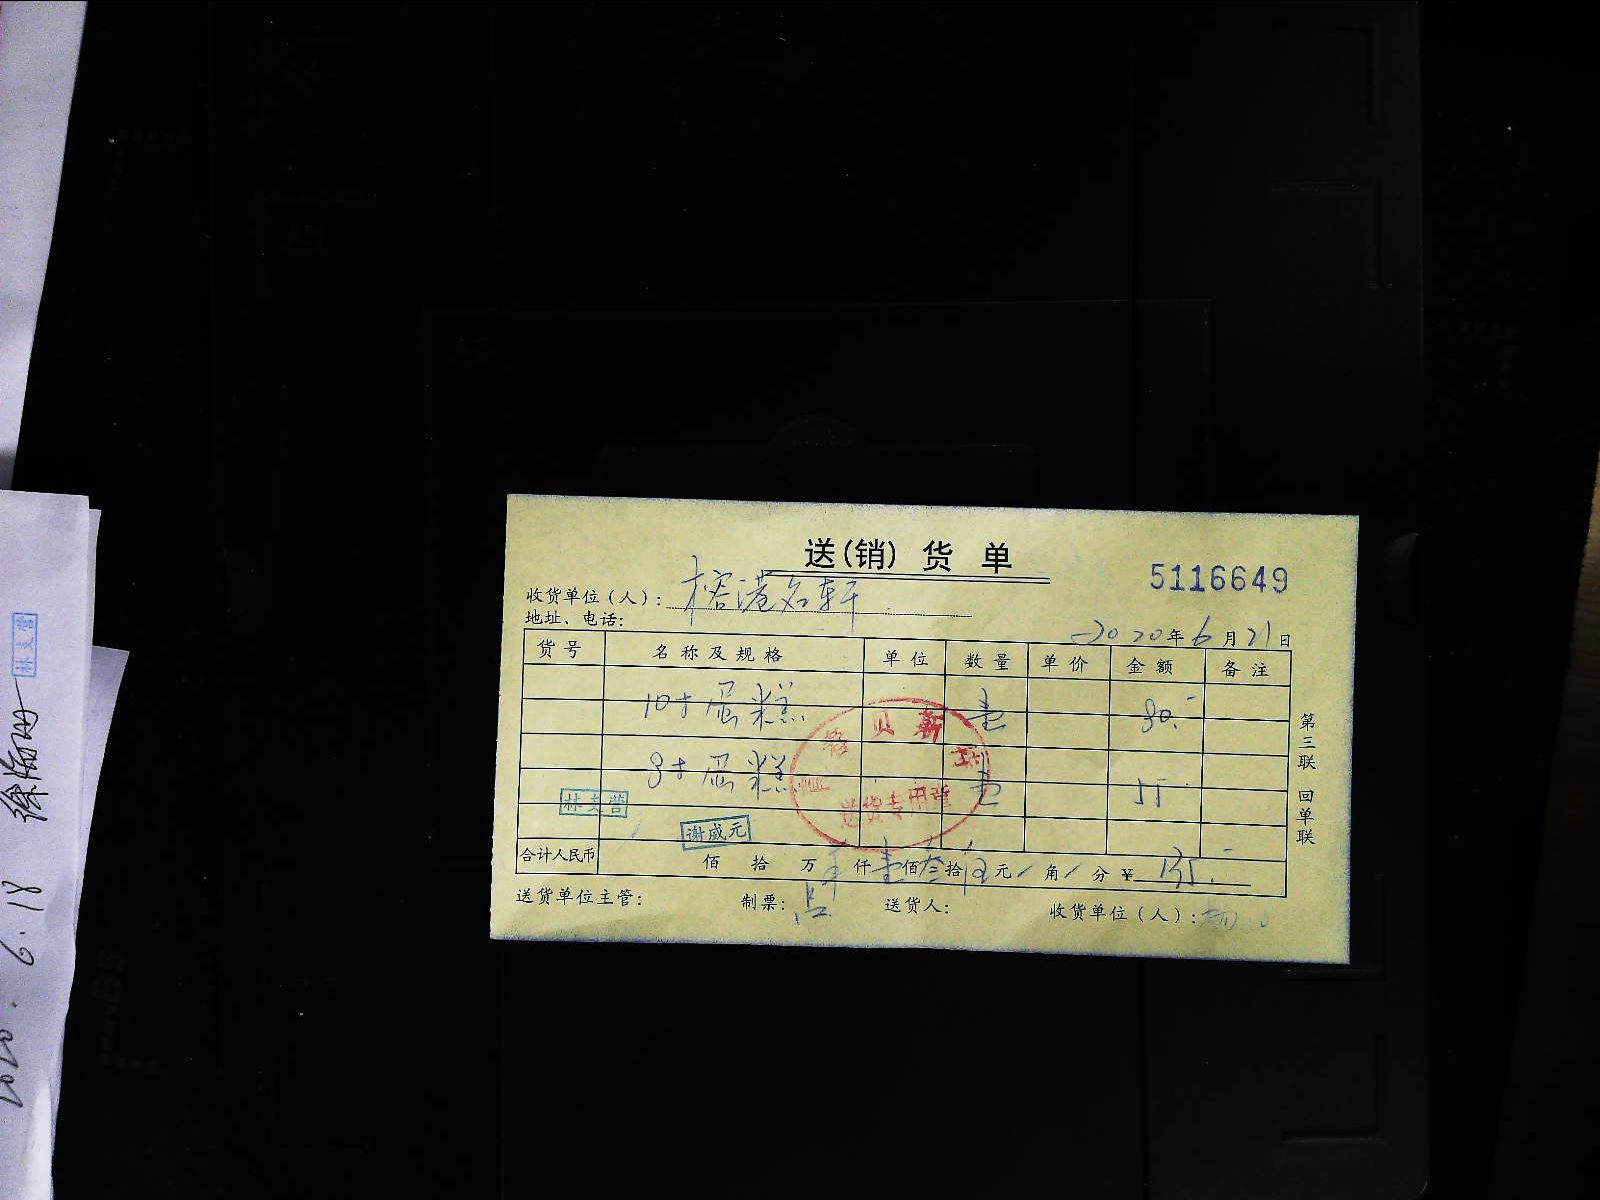 送(销)货单
5116649
收货单位(人): 榕港名轩
地址、电话:
2020年6月21日
货号 名称及规格 单位 数量 单价 金额 备注
10寸蛋糕 壹 80.-
8寸蛋糕 壹 55
贝斯
送货专用章
林支营
谢威元
合计人民币 佰 拾 万 仟壹佰叁拾伍元/角/分 ¥135.-
送货单位主管: 制票: 送货人: 收货单位(人):
第三联 回单联
林支营
2020.6.18